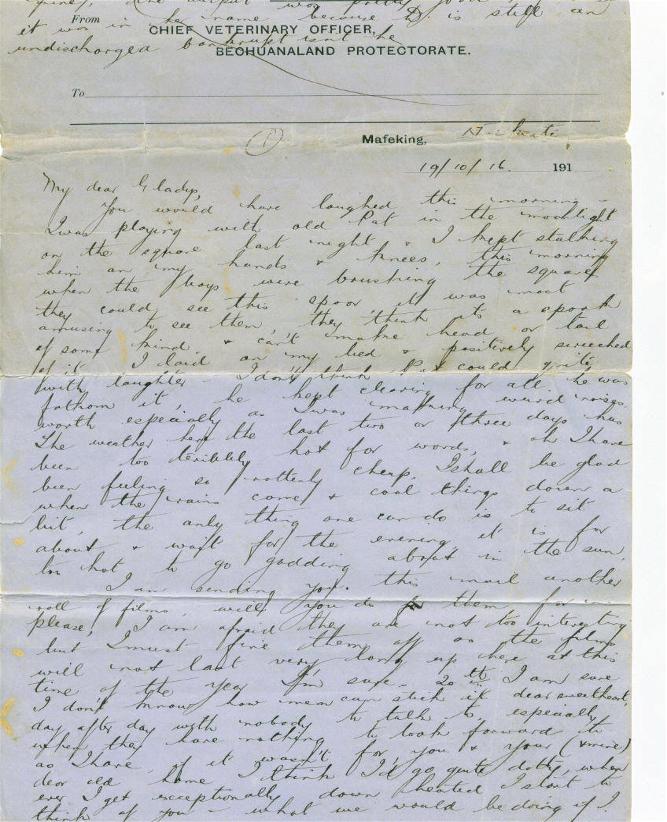 it was in he name because D. is still an
undischarged bankrupt isn't he
From CHIEF VETERINARY OFFICER,
BECHUANALAND PROTECTORATE.
To
(1) Mafeking,
19/10/16. 191
My dear Gladys,
You would have laughed this morning -
I was playing with old Pat in the moonlight
on the square last night & I kept stalking
him on my hands & knees, this morning
when the boys were brushing the square
they could see this spoor it was most
amusing to see them, they think to a spook
of some kind & can't make head or tail
of it. I laid on my bed & positively screeched
with laughter - I don't think Pat could quite
fathom it, he kept clearing for all he was
worth especially as I was making weird noises
The weather here the last two or three days has
been too terribly hot for words, & oh I have
been feeling so rottenly cheap, I shall be glad
when the rains come & cool things down a
bit, the only thing one can do is to sit
about & wait for the evening it is far
too hot to go gadding about in the sun.
I am sending you this mail another
roll of films, will you do them for me
please, I am afraid they are not too interesting
but I must fire them off as the films
will not last very long up here at this
time of the year I'm sure - 20th I am sure
I don't know how men can stick it dear sweetheart,
day after day with nobody to talk to, especially
when they have nothing to look forward to
as I have, if it wasn't for you & your (& mine)
dear old home I think I'd go quite dotty, when
ever I get exceptionally down hearted I start to
think of you - what we would be doing if I